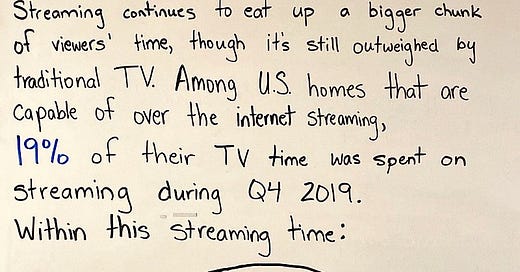 Streaming continues to eat up a bigger chunk
of viewers' time, though it's still outweighed by
traditional TV. Among U.S. homes that are
capable of over the internet streaming,
19% of their TV time was spent on
streaming during Q4 2019.
Within this streaming time: